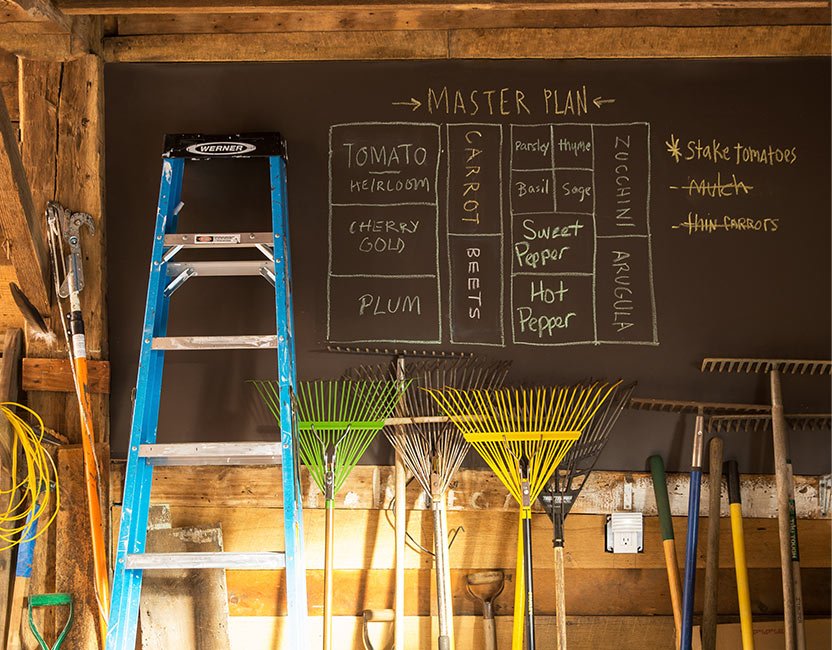 WERNER
→ MASTER PLAN ←
TOMATO
HEIRLOOM
CHERRY
GOLD
PLUM
CARROT
BEETS
Parsley
thyme
Basil
Sage
Sweet
Pepper
Hot
Pepper
ZUCCHINI
ARUGULA
* Stake tomatoes
- Mulch
- thin carrots